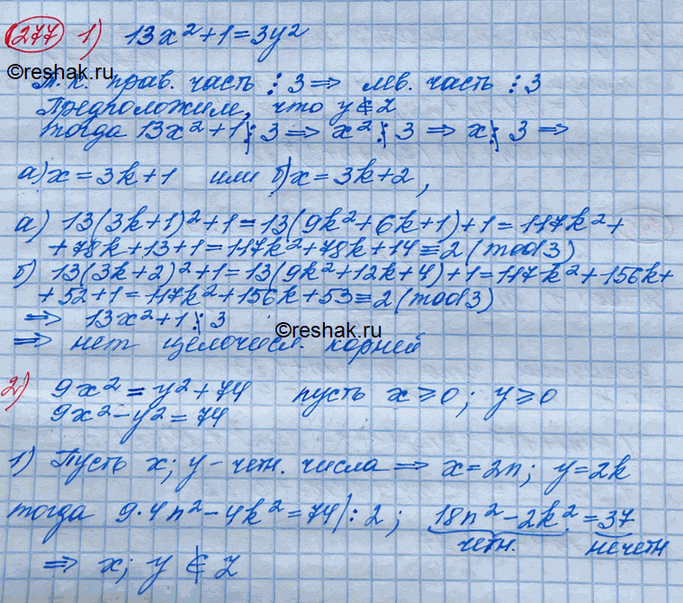 277 1) 13x²+1=3y²
©reshak.ru
Т.к. прав. часть ⋮ 3 ⇒ лев. часть ⋮ 3
Предположим, что y∉Z
тогда 13x²+1 ⋮̸ 3 ⇒ x² ⋮̸ 3 ⇒ x ⋮̸ 3 ⇒
а) x=3k+1 или б) x=3k+2,
а) 13(3k+1)²+1=13(9k²+6k+1)+1=117k²+
+78k+13+1=117k²+78k+14≡2(mod3)
б) 13(3k+2)²+1=13(9k²+12k+4)+1=117k²+156k+
+52+1=117k²+156k+53≡2(mod3)
⇒ 13x²+1 ⋮̸ 3
©reshak.ru
⇒ нет целочисл. корней
2) 9x²=y²+74 пусть x⩾0; y⩾0
9x²-y²=74
1) Пусть x; y - четн. числа ⇒ x=2n; y=2k
тогда 9·4n²-4k²=74 |:2; 18n²-2k²=37
четн. нечетн
⇒ x; y ∉ Z